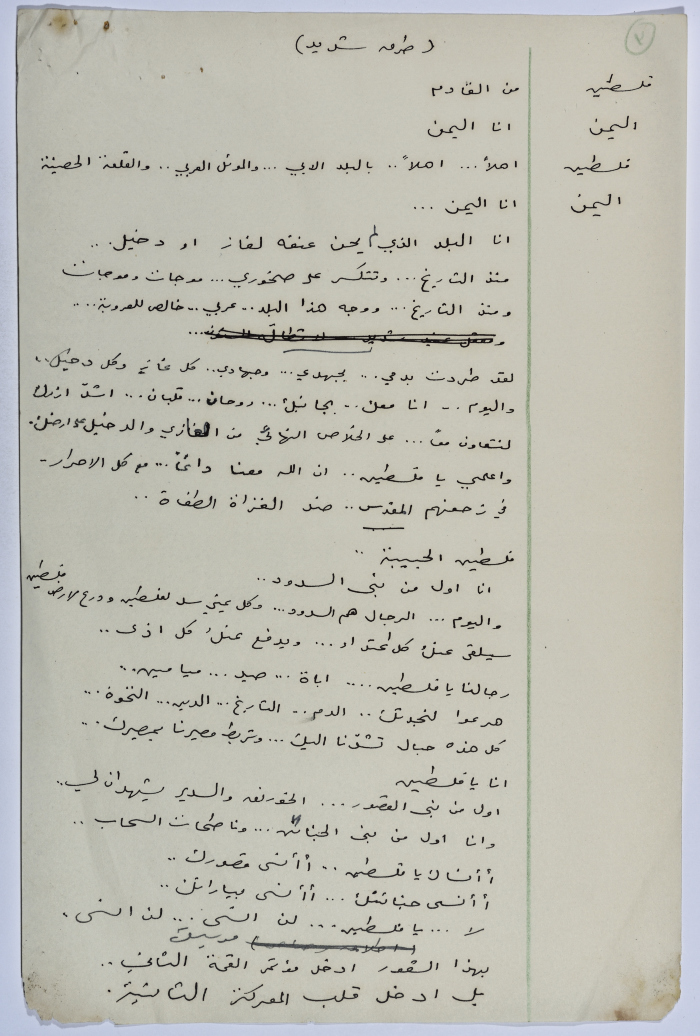 ٧
( طرق شديد )
فلسطين من القادم
اليمن انا اليمن
فلسطين اهلاً ... اهلاً .. بالبلد الابي ... والموئل العربي .. والقلعة الحصينة
اليمن انا اليمن ...
انا البلد الذي لم يحن عنقه لغاز او دخيل ...
منذ التاريخ ... وتتكسر على صخوري ... موجات وموجات
ومنذ التاريخ ... ووجه هذا البلد .. عربي .. خالص للعروبة ....
لقد طردت بدمي ... بجهدي ... وجهادي .. كل غاز وكل دخيل ..
واليوم .. انا معك .. بجانبك ... روحان .. قلبان ... اشدّ ازرك
لنتعاون معاً ... على الخلاص النهائي من الغازي والدخيل على ارضك .
واعلمي يا فلسطين .. ان الله معنا دائماً ... مع كل الاحرار ..
في زحفهم المقدس .. ضد الغزاة الطغاة ..
فلسطين الحبيبة ..
انا اول من بنى السدود ..
واليوم ... الرجال هم السدود ... وكل يمني سد لفلسطين ودرع لارض فلسطين
سيلقى عنك كل اعتداء ... ويدفع عنك كل اذى ..
رجالنا يا فلسطين .... اباة ... صيد ... ميامين ...
هرعوا لنجدتك .. الدم .. التاريخ ... الدين ... النخوة ...
كل هذه حبال تشدّنا اليك ... وتربط مصيرنا بمصيرك ...
انا يا فلسطين
اول من بنى القصور ... الخورنق والسدير يشهدان لي ..
وانا اول من بنى الجنائن ... وناطحات السحاب ..
أأنساك يا فلسطين .. أأنسى قصورك ..
أأنسى جنائنك ... أأنسى بياراتك ..
لا ... يا فلسطين ... لن انسى ... لن انسى .
موسيقى
بهذا الشعور ادخل مؤتمر القمة الثاني ..
بل ادخل قلب المعركة الثانية .